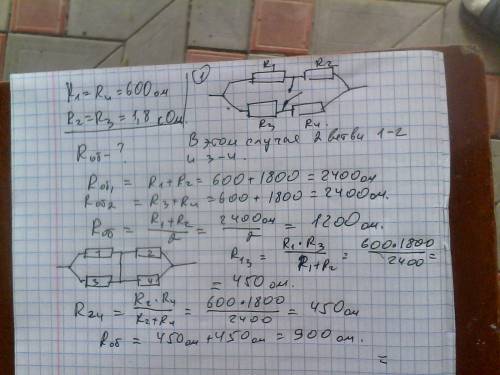 R1 = R4 = 600 ом
R2 = R3 = 1,8 кОм.
Rоб - ?
1
R1 R2
R3 R4
В этом случае 2 ветви 1-2
и 3-4.
Rоб1 = R1 + R2 = 600 + 1800 = 2400 ом
Rоб2 = R3 + R4 = 600 + 1800 = 2400 ом.
Rоб = (R1 + R2) / 2 = 2400 ом / 2 = 1200 ом.
1 2
3 4
R13 = R1 · R3 / (R1 + R2) = 600 · 1800 / 2400 =
= 450 ом.
R24 = R2 · R4 / (R2 + R4) = 600 · 1800 / 2400 = 450 ом
Rоб = 450 ом + 450 ом = 900 ом.
=